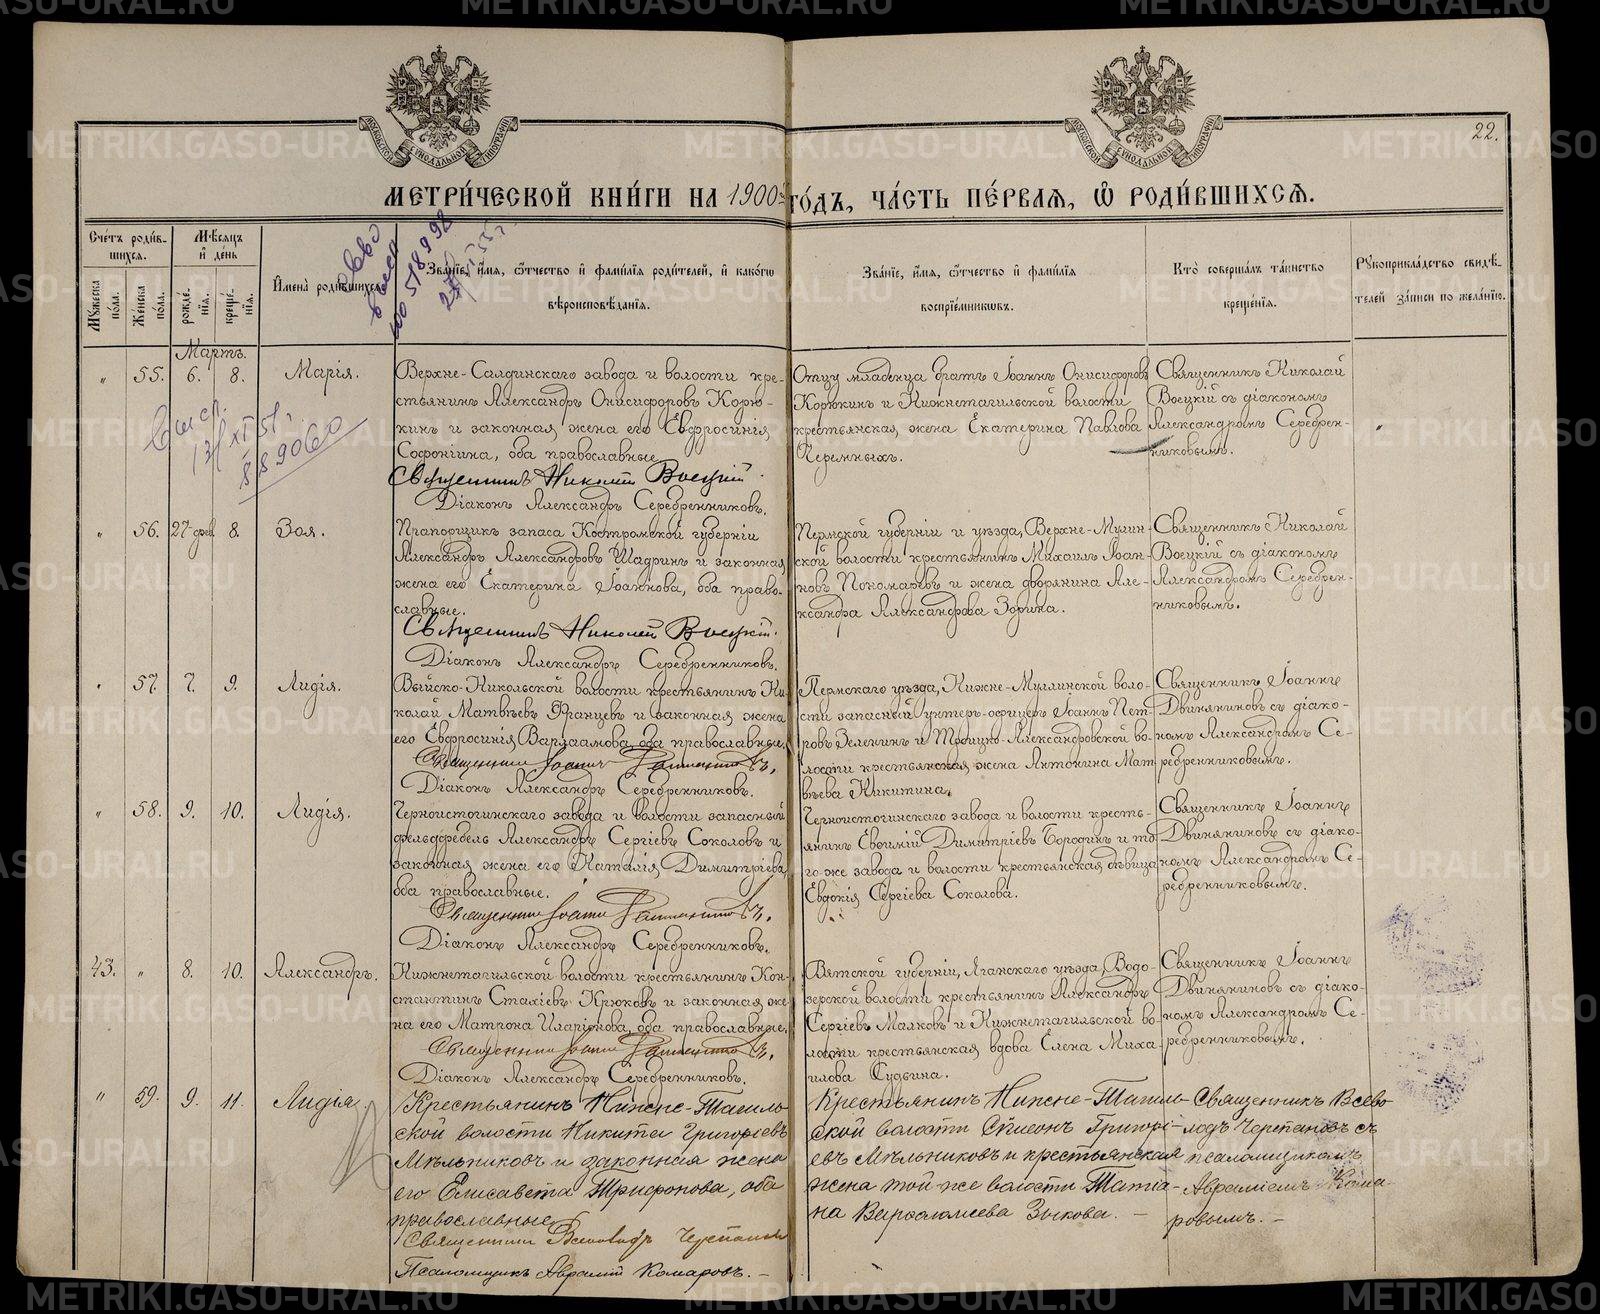 22.
МЕТРИ́ЧЕСКОЙ КНИ́ГИ НА 1900й ГО́ДЪ, ЧА́СТЬ ПЕ́РВАЯ, Ѡ РОДИ́ВШИХСѦ.
Сче́тъ роди́в-
шихсѧ.
Мꙋжеска по́ла.
Же́нска по́ла.
Мѣ́сѧцъ
и҆ де́нь
рожде́-
нїѧ.
креще́-
нїѧ.
И҆мена̀ роди́вшихсѧ.
Зва́нїе, и҆́мѧ, ѻ҆́тчество и҆ фами́лїѧ роди́телей, и҆ како́гѡ
вѣроисповѣ́данїѧ.
Зва́нїе, и҆́мѧ, ѻ҆́тчество и҆ фами́лїѧ
воспрїе́мникѡвъ.
Кто̀ соверша́лъ та́инство
креще́нїѧ.
Рꙋкоприкла́дство свидѣ́-
телей за́писи по жела́нїю.
Мартъ.
„ 55. 6. 8. Марія.
Верхне-Салдинскаго завода и волости кре-
стьянинъ Александръ Онисифоровъ Корю-
кинъ и законная жена его Евфросинія
Софоніина, оба православные
Священникъ Николай Воецкій.
Діаконъ Александръ Серебренниковъ.
Отцу младенца братъ Іоаннъ Онисифоровъ
Корюкинъ и Нижнетагильской волости
крестьянская жена Екатерина Павлова
Черемныхъ.
Священникъ Николай
Воецкій съ діакономъ
Александромъ Серебрен-
никовымъ.
„ 56. 27 фев. 8. Зоя.
Прапорщикъ запаса Костромской губерніи
Александръ Александровъ Шадринъ и законная
жена его Екатерина Іоаннова, оба право-
славные.
Священникъ Николай Воецкій.
Діаконъ Александръ Серебренниковъ.
Пермской губерніи и уѣзда, Верхне-Мулин-
ской волости крестьянинъ Михаилъ Іоан-
новъ Пономаревъ и жена дворянина Але-
ксандра Александрова Зорина.
Священникъ Николай
Воецкій съ діакономъ
Александромъ Серебрен-
никовымъ.
„ 57. 7. 9. Лидія.
Выйско-Никольской волости крестьянинъ Ни-
колай Матвѣевъ Францевъ и законная жена
его Евфросинія Варлаамова, оба православные.
Священникъ Іоаннъ
Діаконъ Александръ Серебренниковъ.
Пермскаго уѣзда, Нижне-Муллинской воло-
сти запасный унтеръ-офицеръ Іоаннъ Пет-
ровъ Зеленинъ и Троицко-Александровской во-
лости крестьянская жена Антонина Мат-
вѣева Никитина.
Священникъ Іоаннъ
Двиняниновъ съ діако-
номъ Александромъ Се-
ребренниковымъ.
„ 58. 9. 10. Лидія.
Черноистогинскаго завода и волости запасный
фельдфебель Александръ Сергіевъ Соколовъ и
законная жена его Наталія Димитріева,
оба православные.
Священникъ Іоаннъ
Діаконъ Александръ Серебренниковъ.
Черноистогинскаго завода и волости кресть-
янинъ Евѳимій Димитріевъ Бородинъ и то-
го-же завода и волости крестьянская дѣвица
Евдокія Сергіева Соколова.
Священникъ Іоаннъ
Двиняниновъ съ діако-
номъ Александромъ Се-
ребренниковымъ.
43. „ 8. 10. Александръ.
Нижнетагильской волости крестьянинъ Кон-
стантинъ Стахіевъ Крюковъ и законная же-
на его Матрона Иларіонова, оба православные.
Священникъ Іоаннъ
Діаконъ Александръ Серебренниковъ.
Вятской губерніи, Яранскаго уѣзда, Водо-
зерской волости крестьянинъ Александръ
Сергіевъ Малковъ и Нижнетагильской во-
лости крестьянская вдова Елена Миха-
илова Судьина.
Священникъ Іоаннъ
Двиняниновъ съ діако-
номъ Александромъ Се-
ребренниковымъ.
„ 59. 9. 11. Лидія
Крестьянинъ Нижне-Тагиль-
ской волости Никита Григорьевъ
Мѣльниковъ и законная жена
его Елисавета Трифонова, оба
православные
Священникъ Всеволодъ Черепановъ
Псаломщикъ Авраамій Комаровъ. —
Крестьянинъ Нижне-Тагиль-
ской волости Симеонъ Григорі-
евъ Мѣльниковъ и крестьянская
жена той-же волости Татіа-
на Варѳоломеева Зыкова. —
Священникъ Всево-
лодъ Черепановъ съ
псаломщикомъ
Авраміемъ Кома-
ровымъ. —
METRIKI.GASO-URAL.RU